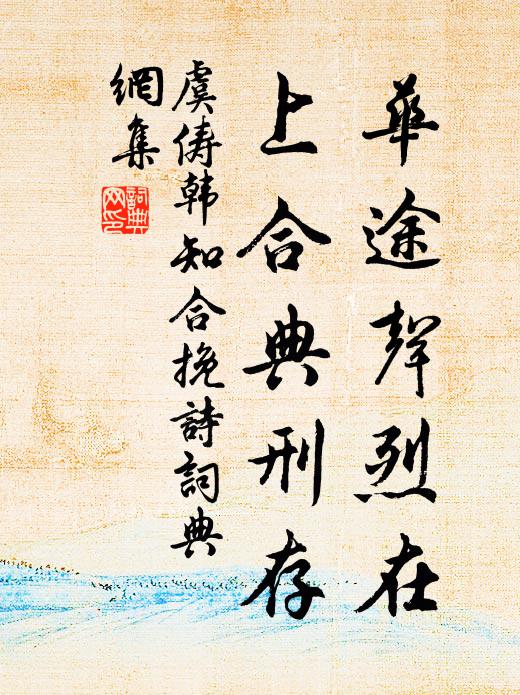 華途聲烈在
上合典刑存
虞儔韩知合挽詩詞典
網集
詞典
网印